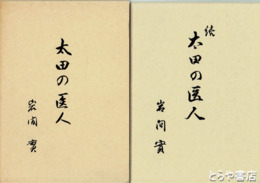 太田の医人
岩間實
続
太田の医人
岩間實
とらや書店